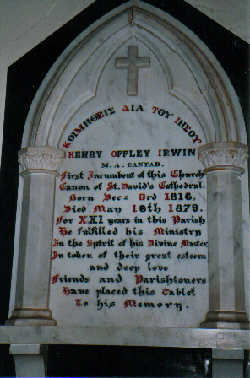 ΚΟΙΜΗΘΕΙΣ ΔΙΑ ΤΟΥ ΙΗΣΟΥ
HENRY OPPLEY IRWIN
M.A. CANTAB.
First Incumbent of this Church
Canon of St. David's Cathedral.
Born Decr 3rd 1816,
Died May 16th 1879.
For XXI years in this Parish
He fulfilled his Ministry
In the Spirit of his Divine Master
In token of their great esteem
and deep love
Friends and Parishioners
Have placed this Tablet
To his Memory.